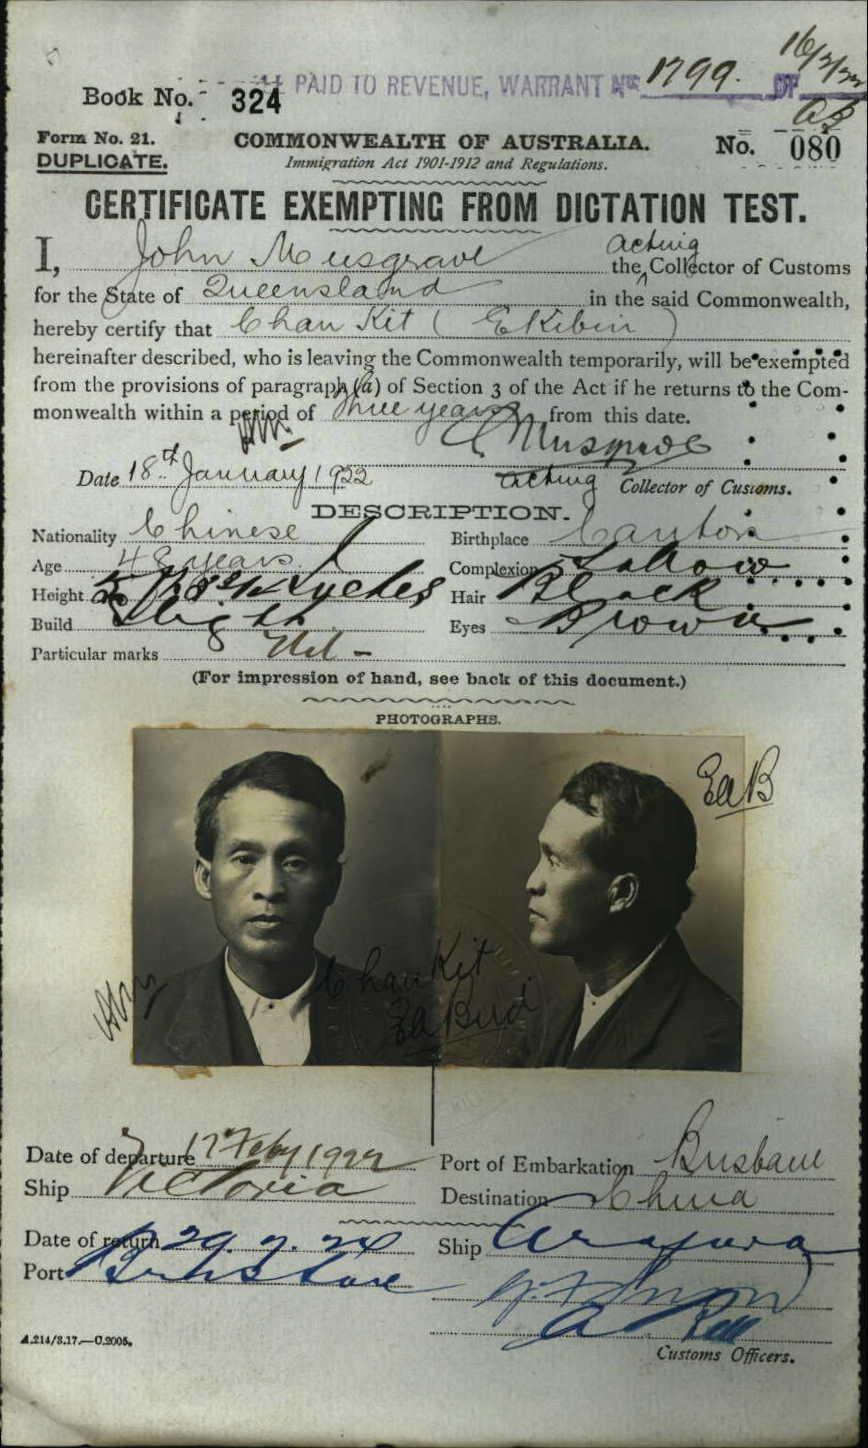 PAID TO REVENUE, WARRANT No. 1799. OF 16/2/22
Book No. 324
Form No. 21.
DUPLICATE.
COMMONWEALTH OF AUSTRALIA.
Immigration Act 1901-1912 and Regulations.
No. 080
CERTIFICATE EXEMPTING FROM DICTATION TEST.
acting
I, John Musgrave the Collector of Customs
for the State of Queensland in the said Commonwealth,
hereby certify that Chan Kit (Ekibin)
hereinafter described, who is leaving the Commonwealth temporarily, will be exempted
from the provisions of paragraph (a) of Section 3 of the Act if he returns to the Com-
monwealth within a period of three years from this date.
Musgrave
Date 18th January 1922
acting Collector of Customs.
DESCRIPTION.
Nationality Chinese Birthplace Canton
Age 48 years Complexion Sallow
Height 5 inches Hair Black
Build Slight Eyes Brown
Particular marks Nil -
(For impression of hand, see back of this document.)
PHOTOGRAPHS.
EaB
Chan Kit
Ea Bird
Date of departure 17 Feby 1922 Port of Embarkation Brisbane
Ship Victoria Destination China
Date of return 29.7.24 Ship Arafura
Port Brisbane
A.214/3.17.—C.2005.
Customs Officers.